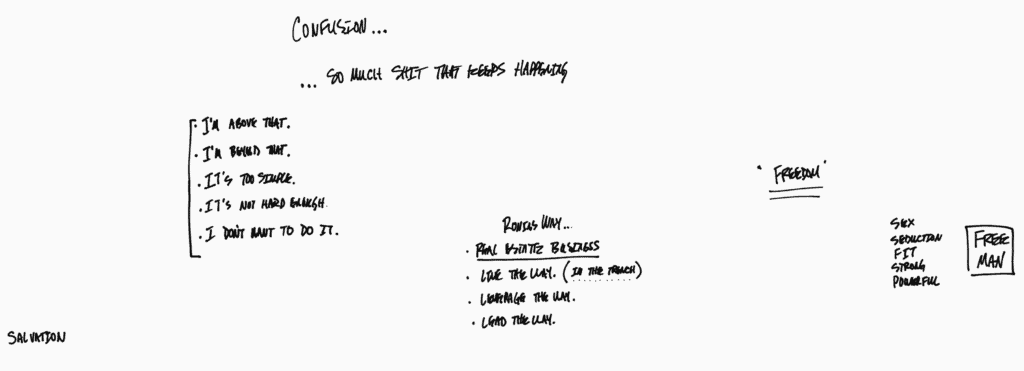 CONFUSION...
... SO MUCH SHIT THAT KEEPS HAPPENING
· I'M ABOVE THAT.
· I'M BEYOND THAT.
· IT'S TOO SIMPLE.
· IT'S NOT HARD ENOUGH.
· I DON'T WANT TO DO IT.
"FREEDOM"
WAY...
· REAL ESTATE BUSINESS
· LIVE THE WAY. (IN THE TRENCH)
· LEVERAGE THE WAY.
· LEAD THE WAY.
SEX
SEDUCTION
FIT
STRONG
POWERFUL
FREE
MAN
SALVATION